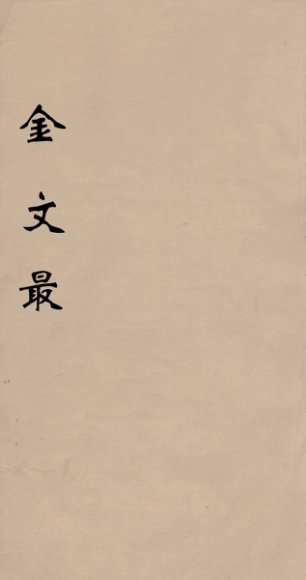 金文最